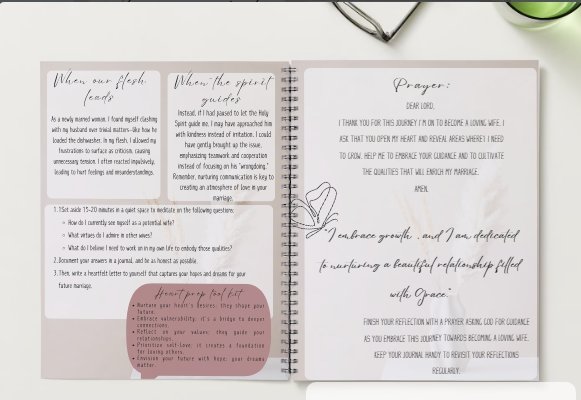 When our flesh
leads
As a newly married woman, I found myself clashing
with my husband over trivial matters-like how he
loaded the dishwasher. In my flesh, I allowed my
frustrations to surface as criticism, causing
unnecessary tension. I often reacted impulsively,
leading to hurt feelings and misunderstandings.
When the spirit
guides
Instead, if I had paused to let the Holy
Spirit guide me, I may have approached him
with kindness instead of irritation. I could
have gently brought up the issue,
emphasizing teamwork and cooperation
instead of focusing on his "wrongdoing."
Remember, nurturing communication is key to
creating an atmosphere of love in your
marriage.
1. 1Set aside 15-20 minutes in a quiet space to meditate on the following questions:
How do I currently see myself as a potential wife?
What virtues do I admire in other wives?
What do I believe I need to work on in my own life to embody those qualities?
2. Document your answers in a journal, and be as honest as possible.
3. Then, write a heartfelt letter to yourself that captures your hopes and dreams for your
future marriage.
Heart prep tool kit
Nurture your heart's desires; they shape your
future.
Embrace vulnerability; it's a bridge to deeper
connections.
Reflect on your values; they guide your
relationships.
Prioritize self-love; it creates a foundation
for loving others.
Envision your future with hope; your dreams
matter.
Prayer:
DEAR LORD,
I THANK YOU FOR THIS JOURNEY I'M ON TO BECOME A LOVING WIFE. I
ASK THAT YOU OPEN MY HEART AND REVEAL AREAS WHERE I NEED
TO GROW. HELP ME TO EMBRACE YOUR GUIDANCE AND TO CULTIVATE
THE QUALITIES THAT WILL ENRICH MY MARRIAGE.
AMEN.
"I embrace growth , and I am dedicated
to nurturing a beautiful relationship filled
with Grace."
FINISH YOUR REFLECTION WITH A PRAYER ASKING GOD FOR GUIDANCE
AS YOU EMBRACE THIS JOURNEY TOWARDS BECOMING A LOVING WIFE.
KEEP YOUR JOURNAL HANDY TO REVISIT YOUR REFLECTIONS
REGULARLY.